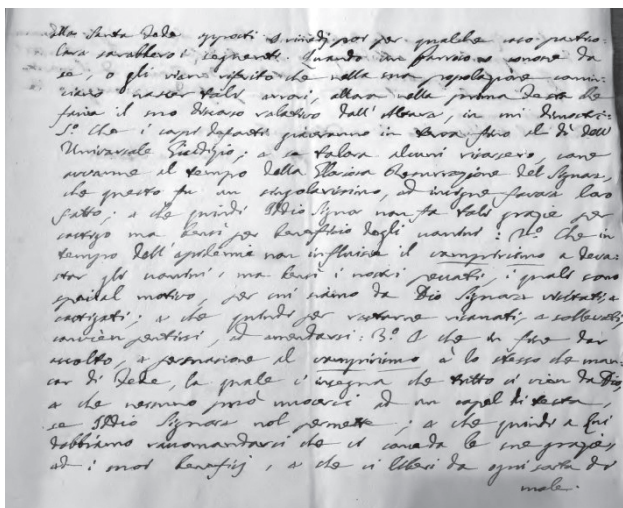 alla Santa Sede opposti e quindi poi per qualche caso partico-
lare sarebbero i seguenti. Quando un Parroco s'accorge da
se, o gli viene riferito che nella sua popolazione comin-
ciano a nascer tali errori, allora nella prima Festa che
farà il suo discorso relativo dall'Altare, in cui dimostri:
1.º che i corpi defonti giaceranno in terra fino al dì dell'
Universale Giudizio; e se talora alcuni risorsero, come
avvenne al tempo della Gloriosa Resurrezione del Signore,
che questo fu un singolarissimo, ed insigne favor loro
fatto; e che quindi Iddio Signor non fa tali grazie per
castigo ma bensì per beneficio degli uomini: 2.º Che in
tempo dell'epidemie non influisce il vampirismo a deva-
star gli uomini, ma bensì i nostri peccati, i quali sono
special motivo, per cui siamo da Dio Signore visitati, e
castigati; e che quindi per restarne risanati, e sollevati,
convien pentirsi, ed emendarsi: 3.º E che in fine dar
ascolto, e persuasione al vampirismo è lo stesso che man-
car di Fede, la quale c'insegna che tutto ci vien da Dio,
e che nessuno può nuocerci ad un capel di testa
se Iddio Signore nol permette; e che quindi a Lui
dobbiamo raccomandarci che ci conceda le sue grazie,
ed i suoi beneficj, e che ci liberi da ogni sorta di
male.